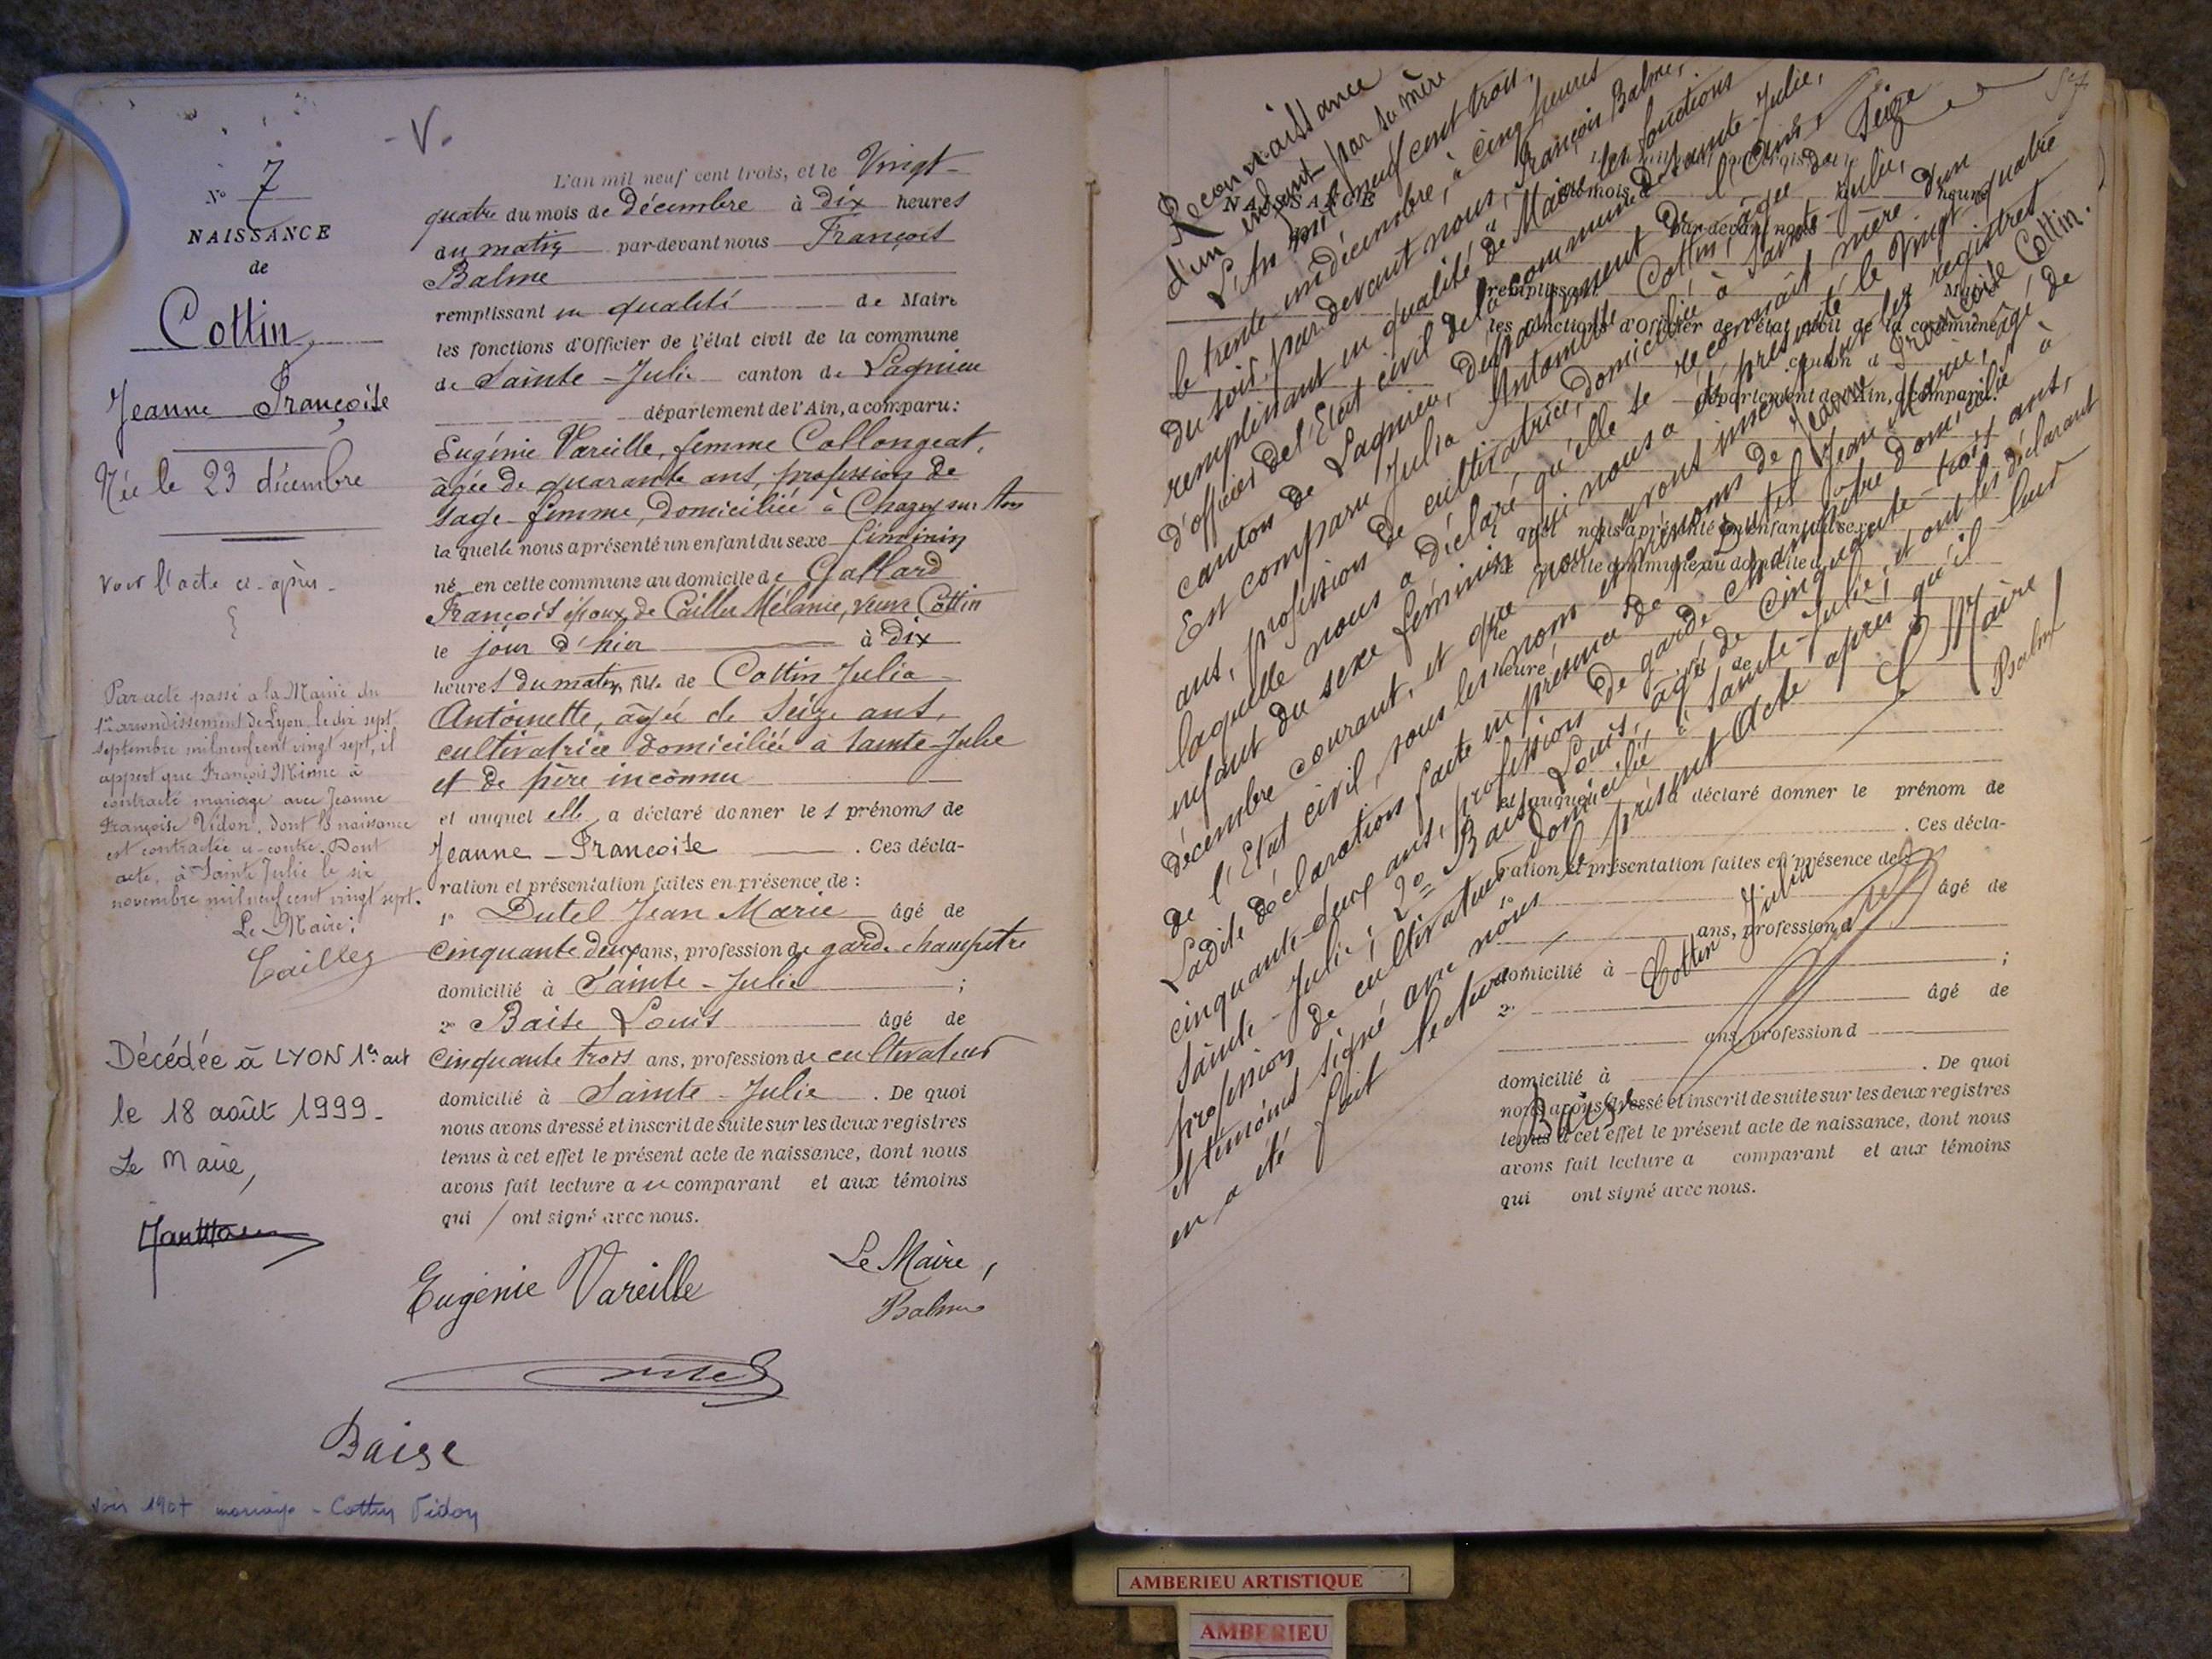 - V -
N° 7
NAISSANCE
de
Cottin
Jeanne Françoise
Née le 23 décembre
Voir l'acte ci-après -
Par acte passé à la Mairie du
1er arrondissement de Lyon le dix sept
septembre mil neuf cent vingt sept, il
appert que François Minne à
contracté mariage avec Jeanne
Françoise Vidon, dont la naissance
est contractée ci-contre. Dont
acte, à Sainte Julie le six
novembre mil neuf cent vingt sept.
Le Maire:
Décédée à LYON 1er art
le 18 août 1999 -
Le Maire,
L'an mil neuf cent trois, et le Vingt-
quatre du mois de décembre à dix heures
du matin par-devant nous François
Balme
remplissant en qualité de Maire
les fonctions d'Officier de l'état civil de la commune
de Sainte-Julie canton de Lagnieu
département de l'Ain, a comparu:
Eugénie Vareille, femme Collongeat,
âgée de quarante ans, profession de
sage-femme, domiciliée à Chazey sur Ain
laquelle nous a présenté un enfant du sexe féminin
né en cette commune au domicile de Gallard
François époux de Cailler Mélanie, veuve Cottin
le jour d'hier à dix
heures du matin, fille de Cottin Julia
Antoinette, âgée de Seize ans,
cultivatrice domiciliée à Sainte-Julie
et de père inconnu
et auquel elle a déclaré donner les prénoms de
Jeanne-Françoise . Ces décla-
ration et présentation faites en présence de :
1° Dutel Jean Marie âgé de
cinquante deux ans, profession de garde champêtre
domicilié à Sainte-Julie ;
2° Baise Louis âgé de
cinquante trois ans, profession de cultivateur
domicilié à Sainte-Julie . De quoi
nous avons dressé et inscrit de suite sur les deux registres
tenus à cet effet le présent acte de naissance, dont nous
avons fait lecture au comparant et aux témoins
qui / ont signé avec nous.
Eugénie Vareille
Le Maire,
Balme
Dutel
Baise
Voir 1907 mariage - Cottin Vidon
Reconnaissance
d'un enfant par sa mère
L'An mil neuf cent trois,
le trente un décembre, à cinq heures
du soir, par devant nous, François Balme,
remplissant en qualité de Maire les fonctions
d'officier de l'Etat civil de la commune de Sainte-Julie,
canton de Lagnieu, département de l'Ain,
Est comparu Julia Antoinette Cottin, âgée de Seize
ans, profession de cultivatrice, domiciliée à Sainte-Julie,
laquelle nous a déclaré qu'elle se reconnaît mère d'un
enfant du sexe féminin qui nous a été présenté le vingt-quatre
décembre courant, et que nous avons inscrit sur les registres
de l'Etat civil, sous les noms et prénoms de Jeanne Françoise Cottin.
Ladite déclaration faite en présence de 1° Dutel Jean Marie, âgé de
cinquante-deux ans, profession de garde champêtre domicilié à
Sainte-Julie; 2° Baise Louis, âgé de cinquante-trois ans,
profession de cultivateur domicilié à Sainte-Julie, et ont les déclarant
et témoins signé avec nous le présent acte après qu'il leur
en a été fait lecture
Le Maire
Balme
Cottin Julia
Dutel
Baise
NAISSANCE
remplissant
les fonctions d'Officier de l'état civil de la commune
département de l'Ain, a comparu:
et auquel a déclaré donner le prénom de
. Ces décla-
ration et présentation faites en présence de:
1° âgé de
ans, profession d
domicilié à ;
2° âgé de
ans, profession d
domicilié à . De quoi
nous avons dressé et inscrit de suite sur les deux registres
tenus à cet effet le présent acte de naissance, dont nous
avons fait lecture a comparant et aux témoins
qui ont signé avec nous.
AMBERIEU ARTISTIQUE
AMBERIEU